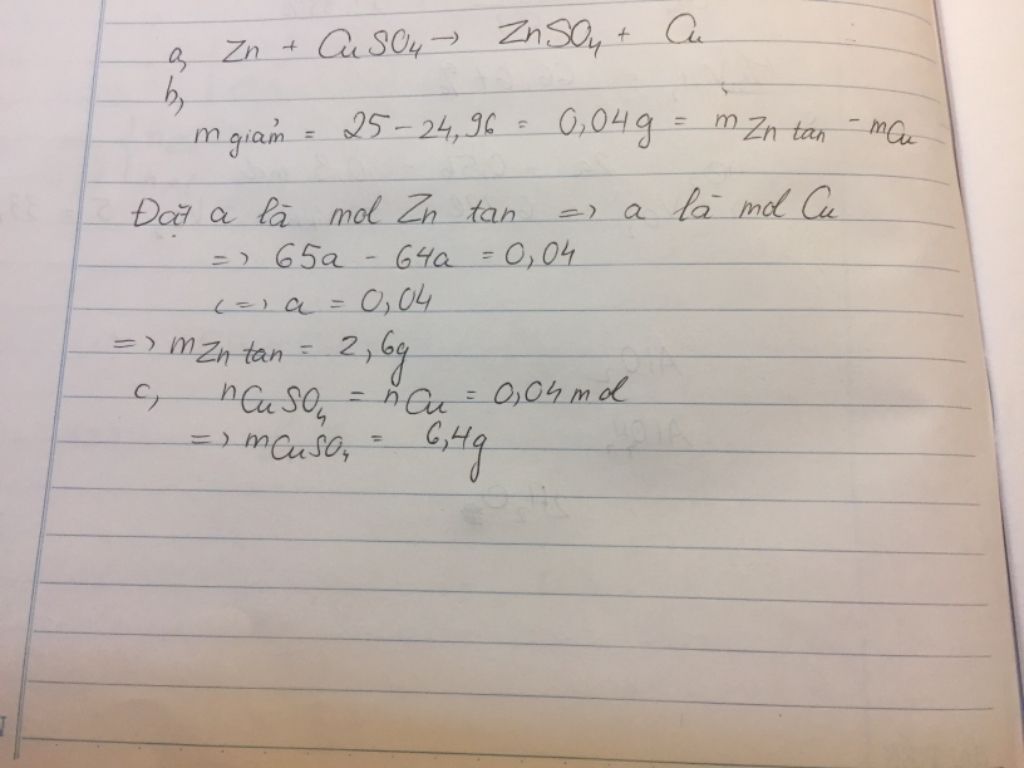 a, Zn + CuSO₄ → ZnSO₄ + Cu
b,
m giảm = 25 - 24,96 = 0,04g = m Zn tan - mCu
Đặt a là mol Zn tan => a là mol Cu
=> 65a - 64a = 0,04
<=> a = 0,04
=> m Zn tan = 2,6g
c, nCuSO₄ = nCu = 0,04 mol
=> mCuSO₄ = 6,4g